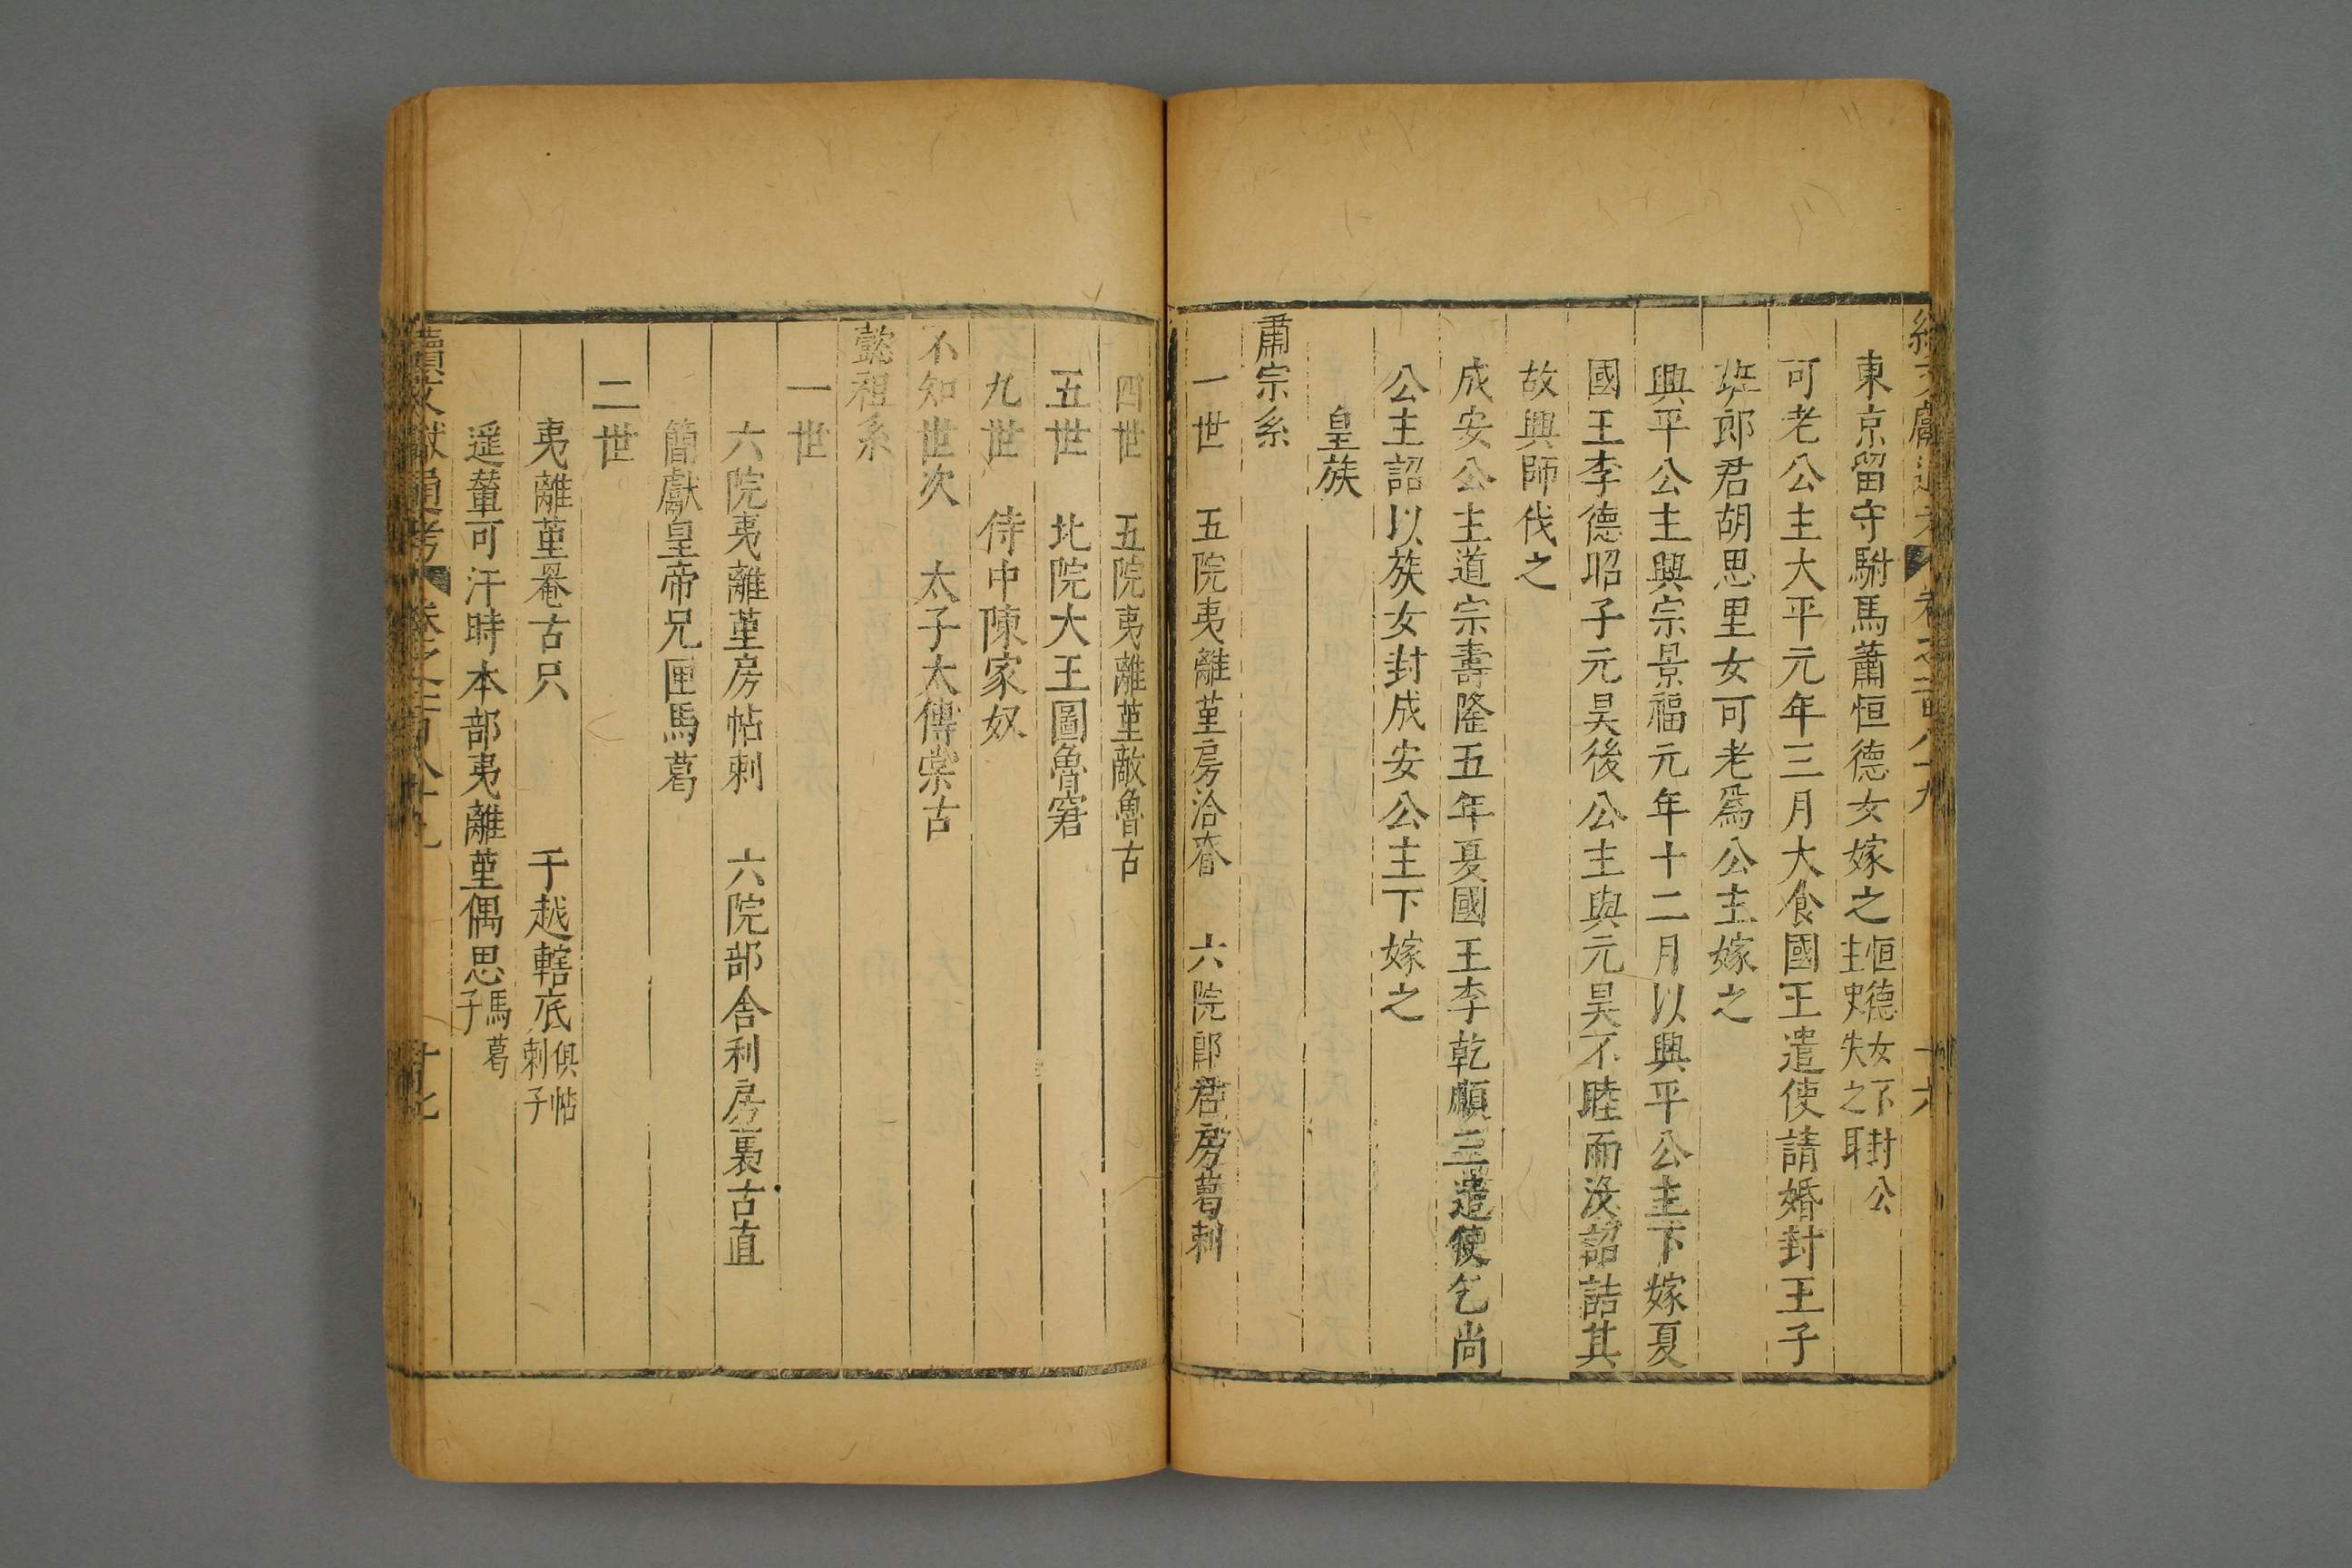 東京留守駙馬蕭恒德女嫁之恒德女下封公主史失之耶
可老公主大平元年三月大食國王遣使請婚封王子
班郎君胡思里女可老爲公主嫁之
興平公主興宗景福元年十二月以興平公主下嫁夏
國王李德昭子元昊後公主與元昊不睦而沒詔詰其
故興師伐之
成安公主道宗壽隆五年夏國王李乾順三遣使乞尚
公主詔以族女封成安公主下嫁之
皇族
肅宗系
一世　五院夷離堇房洽昚　六院郎君房葛剌
四世　五院夷離堇敵魯古
五世　北院大王圖魯窘
九世　侍中陳家奴
不知世次　太子太傅棠古
懿祖系
一世
六院夷離堇房帖剌　六院部舍利房裏古直
簡獻皇帝兄匣馬葛
二世
夷離堇罨古只　于越轄底俱帖剌子
遥輦可汗時本部夷離堇偶思馬葛子
續文獻通考　卷之一百八十九